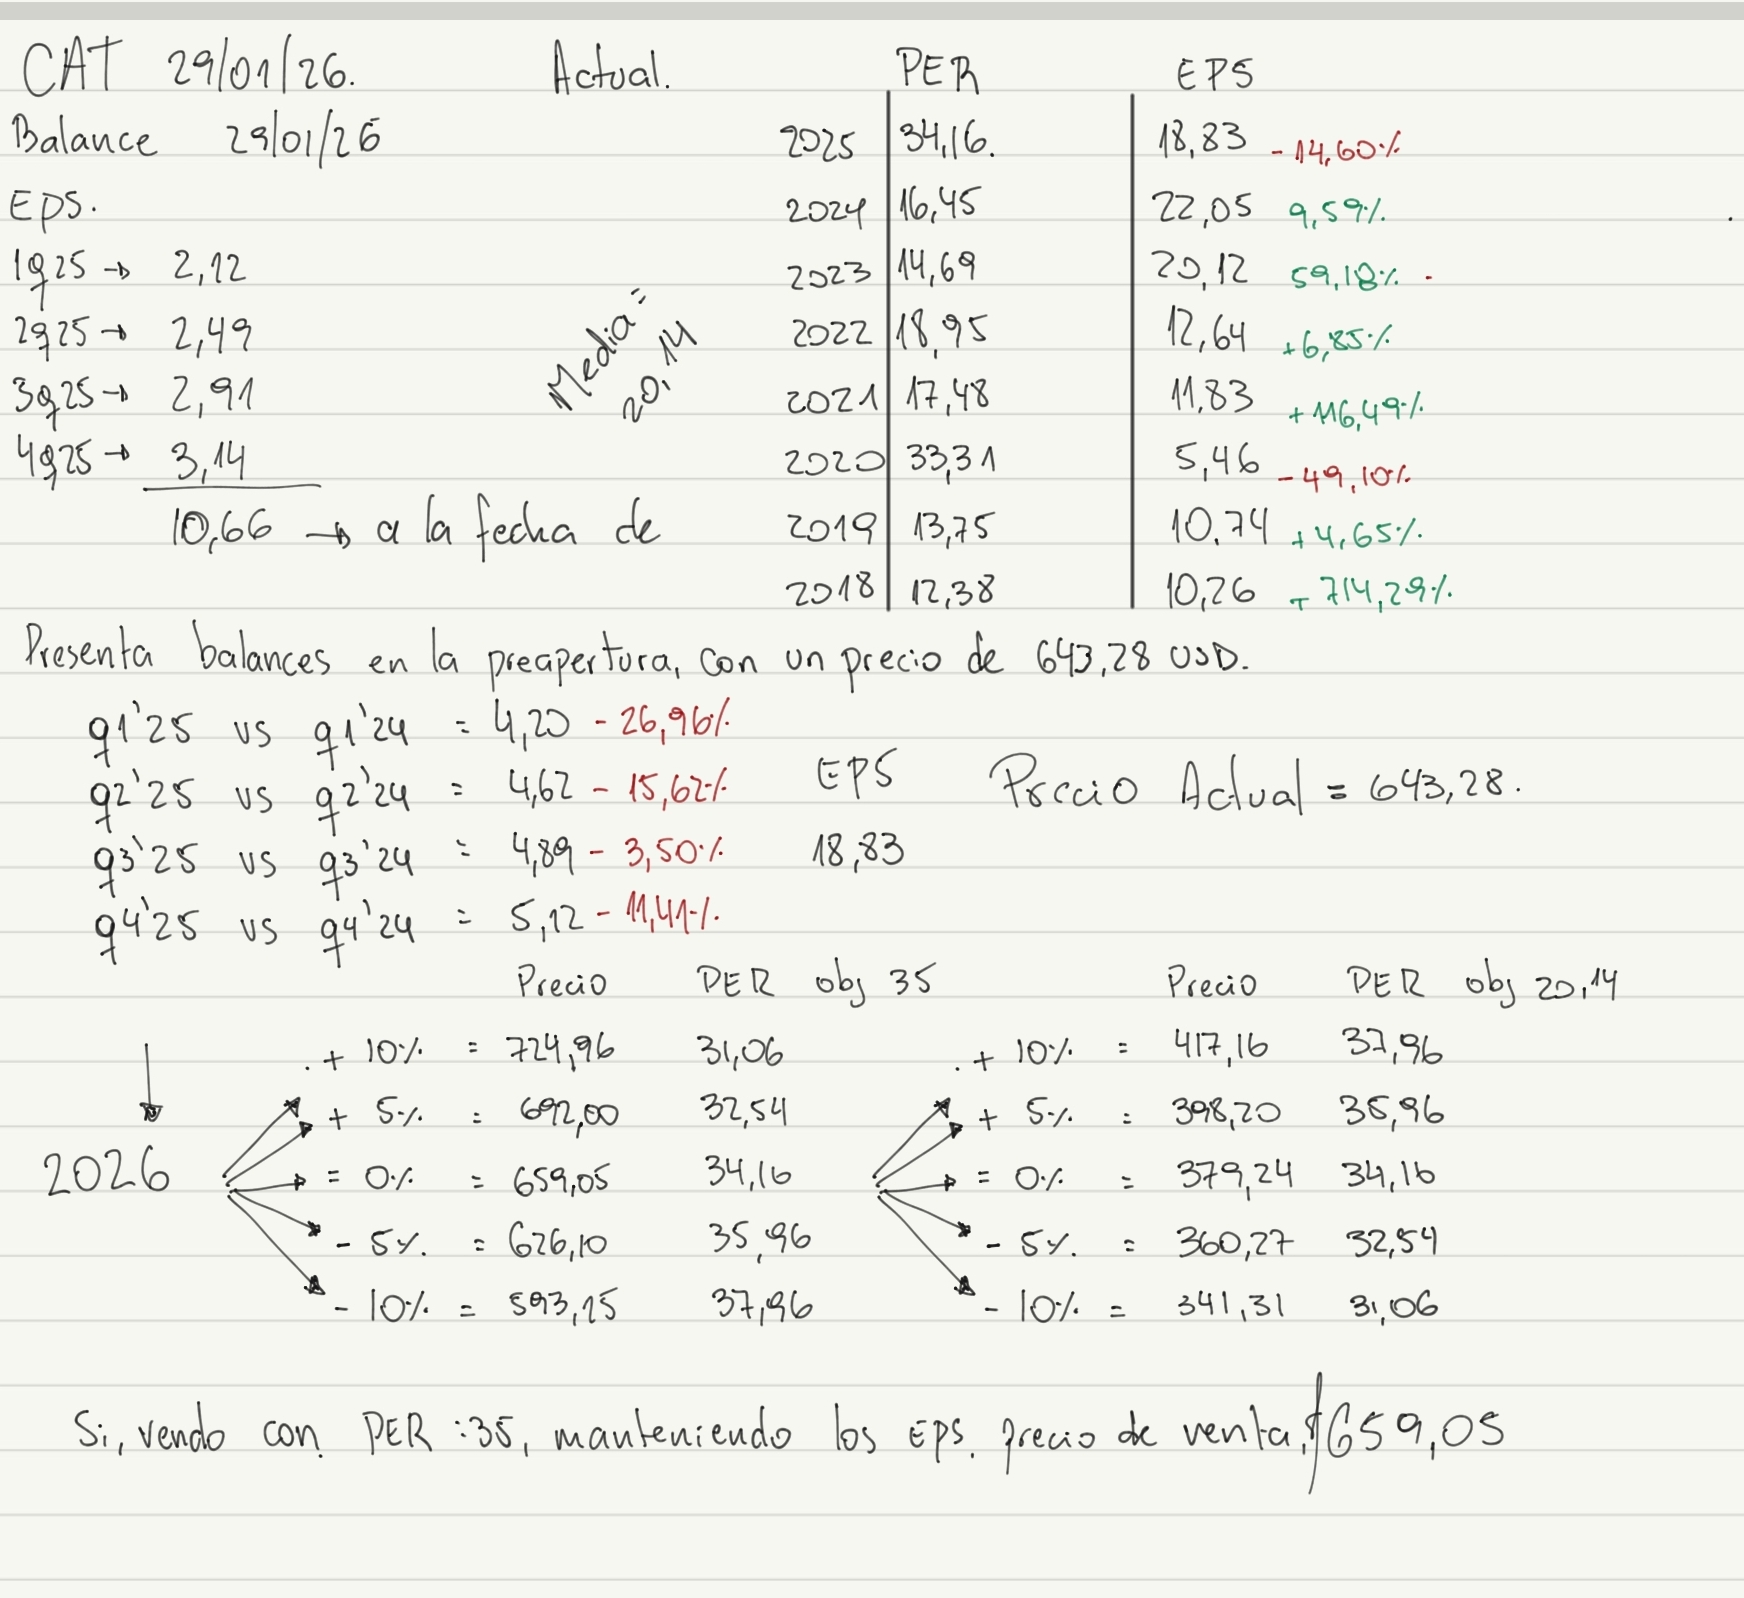 CAT 29/01/26. Actual. PER EPS
Balance 29/01/26 2025 34,16. 18,83 -14,60%
Eps. 2024 16,45 22,05 9,59%
1q25 → 2,12 2023 14,69 20,12 59,18%
2q25 → 2,49 2022 18,95 12,64 +6,85%
3q25 → 2,91 2021 17,48 11,83 +116,49%
4q25 → 3,14 2020 33,31 5,46 -49,10%
Media = 20,14
10,66 → a la fecha de 2019 13,75 10.74 +4,65%
2018 12,38 10,26 + 714,29%
Presenta balances en la preapertura, con un precio de 643,28 USD.
q1'25 vs q1'24 = 4,20 - 26,96%
q2'25 vs q2'24 = 4,62 - 15,62% EPS Precio Actual = 643,28.
q3'25 vs q3'24 = 4,89 - 3,50% 18,83
q4'25 vs q4'24 = 5,12 - 11,41%
Precio PER obj 35 Precio PER obj 20,14
+ 10% = 724,96 31,06 + 10% = 417,16 37,96
+ 5% = 692,00 32,54 + 5% = 398,20 35,96
2026 = 0% = 659,05 34,16 = 0% = 379,24 34,16
- 5% = 626,10 35,96 - 5% = 360,27 32,54
- 10% = 593,15 37,96 - 10% = 341,31 31,06
Si, vendo con PER :35, manteniendo los Eps. precio de venta, $659,05